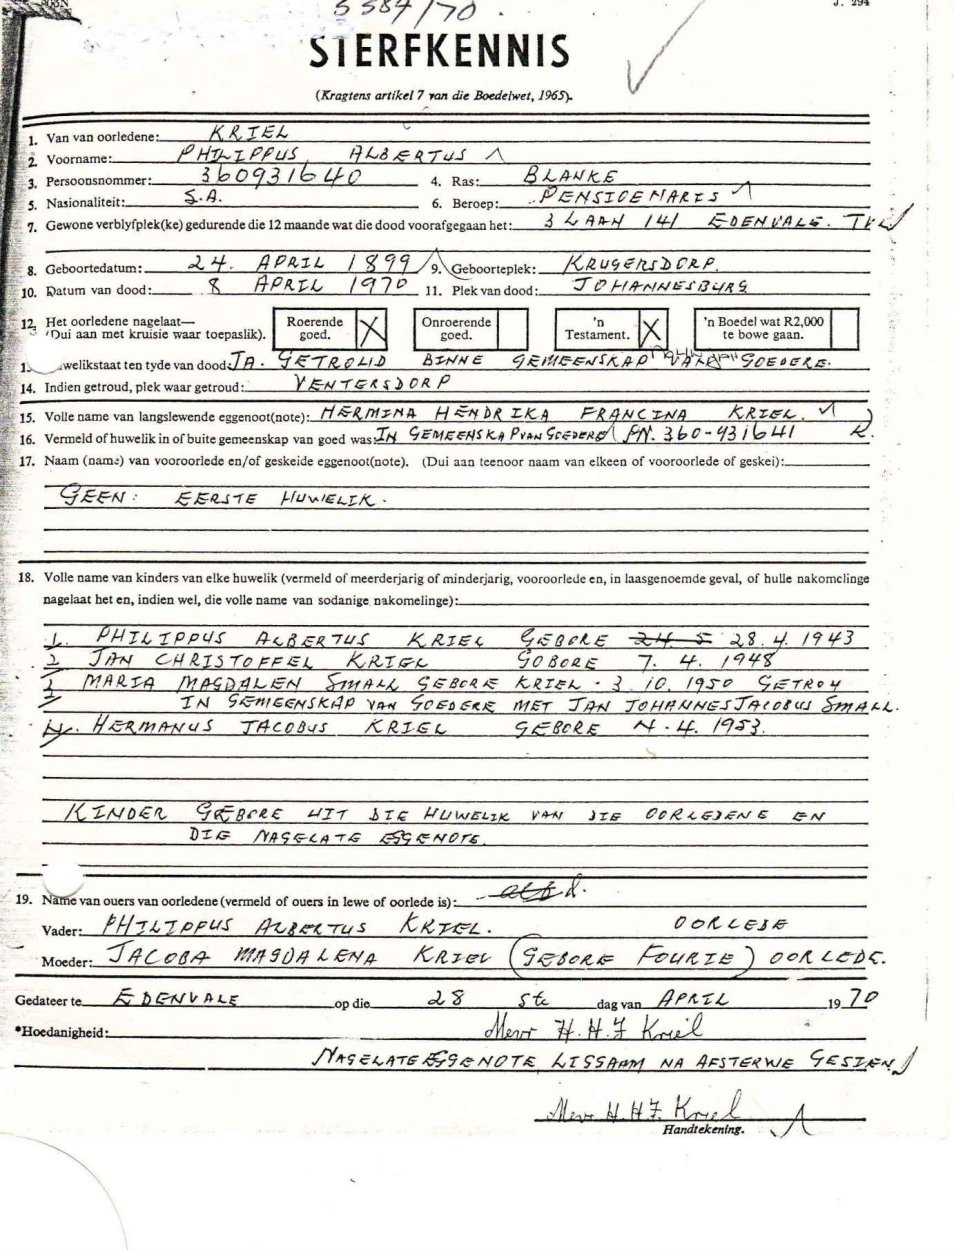 5584/70
J. 294
STERFKENNIS
(Kragtens artikel 7 van die Boedelwet, 1965).
1. Van van oorledene: KRIEL
2. Voorname: PHILIPPUS ALBERTUS
3. Persoonsnommer: 360931640 4. Ras: BLANKE
5. Nasionaliteit: S.A. 6. Beroep: PENSIOENARIS
7. Gewone verblyfplek(ke) gedurende die 12 maande wat die dood voorafgegaan het: 3 LAAN 141 EDENVALE. TVL
8. Geboortedatum: 24. APRIL 1899 9. Geboorteplek: KRUGERSDORP.
10. Datum van dood: 8 APRIL 1970 11. Plek van dood: JOHANNESBURG
12. Het oorledene nagelaat— Roerende goed. X Onroerende goed. 'n Testament. X 'n Boedel wat R2,000 te bowe gaan.
(Dui aan met kruisie waar toepaslik).
welikstaat ten tyde van dood: JA. GETROUD BINNE GEMEENSKAP VAN GOEDERE.
14. Indien getroud, plek waar getroud: VENTERSDORP
15. Volle name van langslewende eggenoot(note): HERMINA HENDRIKA FRANCINA KRIEL.
16. Vermeld of huwelik in of buite gemeenskap van goed was: IN GEMEENSKAP VAN GOEDERE PN. 360-931641
17. Naam (name) van vooroorlede en/of geskeide eggenoot(note). (Dui aan teenoor naam van elkeen of vooroorlede of geskei):
GEEN: EERSTE HUWELIK.
18. Volle name van kinders van elke huwelik (vermeld of meerderjarig of minderjarig, vooroorlede en, in laasgenoemde geval, of hulle nakomelinge
nagelaat het en, indien wel, die volle name van sodanige nakomelinge):
1. PHILIPPUS ALBERTUS KRIEL GEBORE 24. 5 28.4.1943
2 JAN CHRISTOFFEL KRIEL GOBORE 7. 4. 1948
3 MARIA MAGDALEN SMALL GEBORE KRIEL - 3.10.1950 GETROU
IN GEMEENSKAP VAN GOEDERE MET JAN JOHANNES JACOBUS SMALL.
4. HERMANUS JACOBUS KRIEL GEBORE 4.1953.
KINDER GEBORE UIT DIE HUWELIK VAN DIE OORLEDENE EN
DIE NAGELATE EGGENOTE.
19. Name van ouers van oorledene (vermeld of ouers in lewe of oorlede is):
Vader: PHILIPPUS ALBERTUS KRIEL. OORLEDE
Moeder: JACOBA MAGDALENA KRIEL (GEBORE FOURIE) OORLEDE.
Gedateer te EDENVALE op die 28 STE dag van APRIL 1970
*Hoedanigheid: Mevr H.H.F Kriel
NAGELATE EGGENOTE LIGGAAM NA AFSTERWE GESIEN
Mevr H.H.F. Kriel
Handtekening.